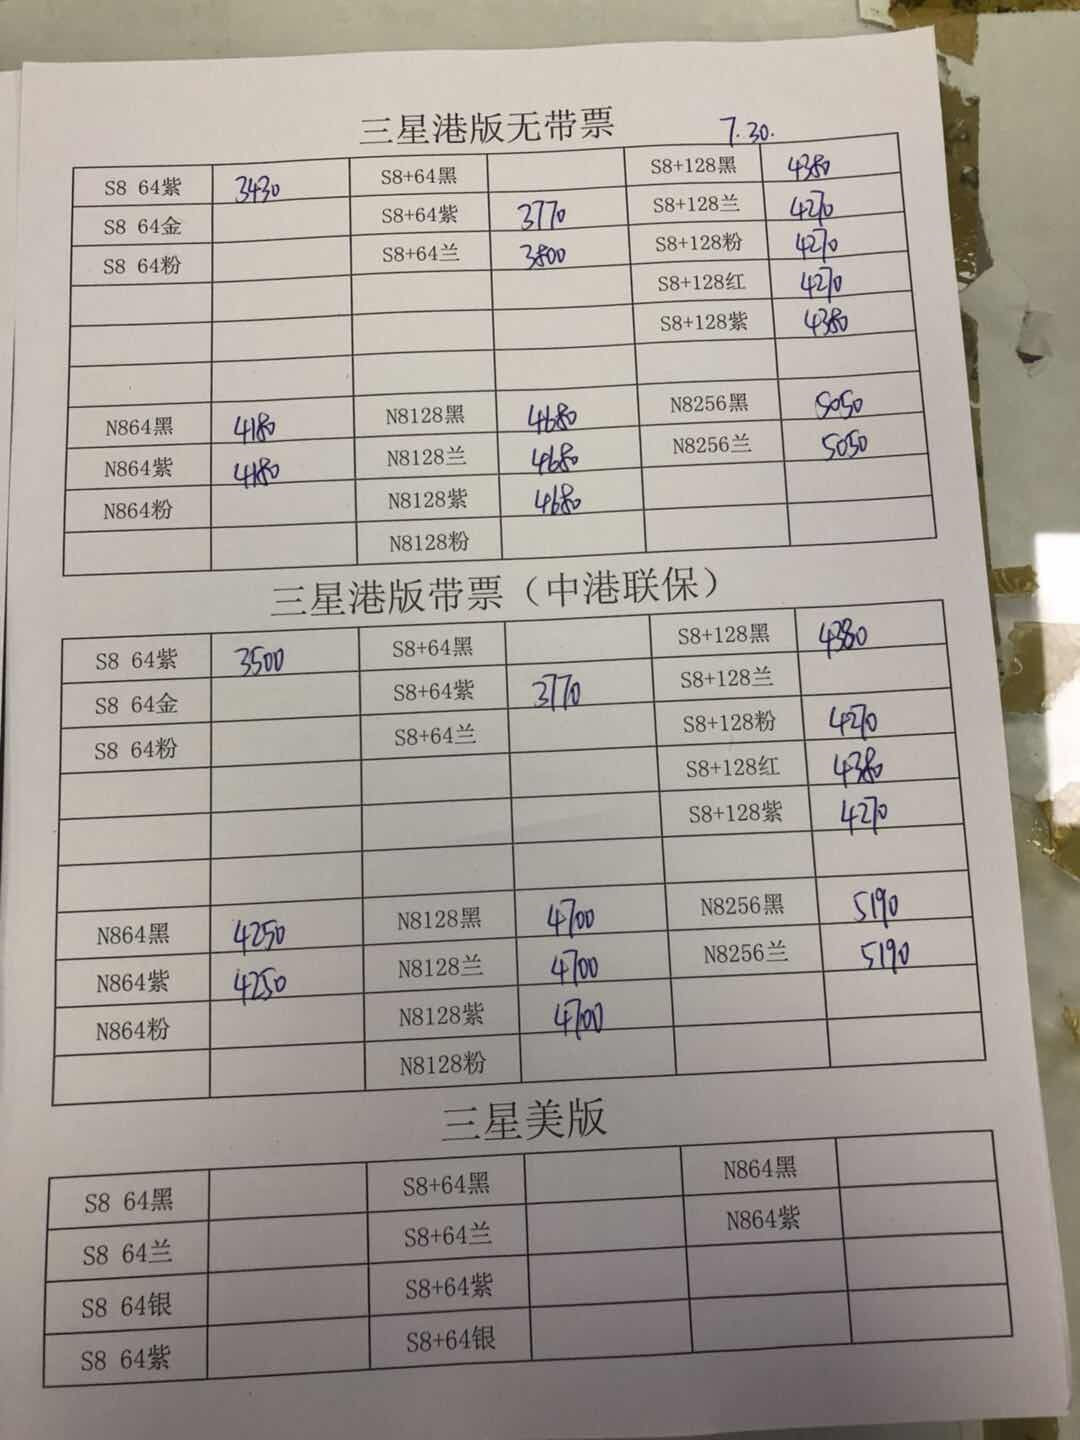 三星港版无带票 7.30.
S8 64紫 3430 S8+64黑 S8+128黑 4380
S8 64金 S8+64紫 3770 S8+128兰 4270
S8 64粉 S8+64兰 3800 S8+128粉 4270
S8+128红 4270
S8+128紫 4380
N864黑 4180 N8128黑 4680 N8256黑 5050
N864紫 4180 N8128兰 4680 N8256兰 5050
N864粉 N8128紫 4680
N8128粉
三星港版带票（中港联保）
S8 64紫 3500 S8+64黑 S8+128黑 4380
S8 64金 S8+64紫 3770 S8+128兰
S8 64粉 S8+64兰 S8+128粉 4270
S8+128红 4380
S8+128紫 4270
N864黑 4250 N8128黑 4700 N8256黑 5190
N864紫 4250 N8128兰 4700 N8256兰 5190
N864粉 N8128紫 4700
N8128粉
三星美版
S8 64黑 S8+64黑 N864黑
S8 64兰 S8+64兰 N864紫
S8 64银 S8+64紫
S8 64紫 S8+64银